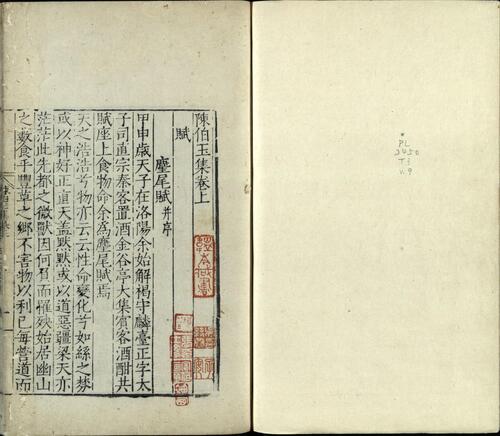 陳伯玉集卷上
賦
麈尾賦 并序
甲申歲天子在洛陽余始解褐守麟臺正字太
子司直宗秦客置酒金谷亭大集賓客酒酣共
賦座上食物命余為麈尾賦焉
天之浩浩兮物亦云云性命變化兮如絲之棼
或以神好正直天蓋默默或以道惡彊梁天亦
茫茫此先都之微獸因何負而罹殃始居幽山
之藪食乎豐草之鄉不害物以利己每營道而
PL
2450
T3
v.9